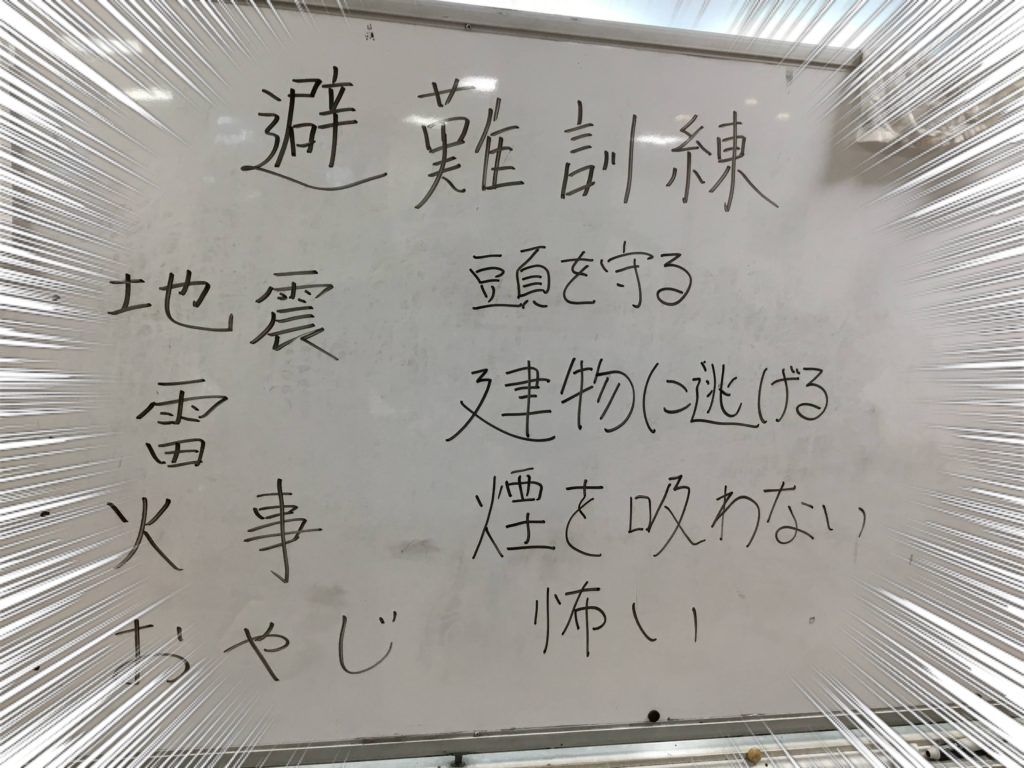 避難訓練
地震 頭を守る
雷 建物に逃げる
火事 煙を吸わない
おやじ 怖い